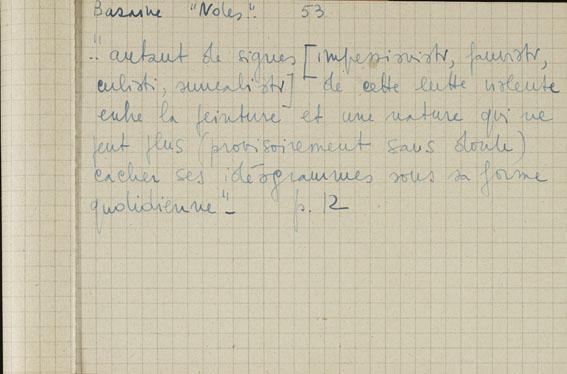 Bazaine "Notes". 53
".. autant de signes [impressionistr, fauvistr,
cubisti, surrealistr] de cette lutte violente
entre la peinture et une nature qui ne
peut plus (provisoirement sans doute)
cacher ses idéogrammes sous sa forme
quotidienne"_ p. 12